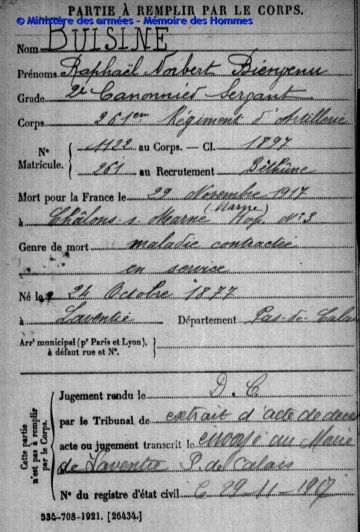 PARTIE À REMPLIR PAR LE CORPS.
© Ministère des armées - Mémoire des Hommes
Nom BUISINE
Prénoms Raphaël Norbert Bienvenu
Grade 2e Canonnier Servant
Corps 261em Régiment d'Artillerie
N° Matricule. { 1122 au Corps. — Cl. 1897
261 au Recrutement Béthune
Mort pour la France le 29 Novembre 1917
à Châlons s Marne (Marne) Hop N° 3
Genre de mort maladie contractée
en service
Né le 24 Octobre 1877
à Laventie Département Pas-de-Calais
Arrt municipal (pr Paris et Lyon),
à défaut rue et N°.
Cette partie n'est pas à remplir par le Corps.
Jugement rendu le D. C.
par le Tribunal de extrait d'acte de décès
acte ou jugement transcrit le envoyé au Maire
de Laventie P. de Calais
N° du registre d'état civil C 29-11-1917
534-708-1921. [26434.]